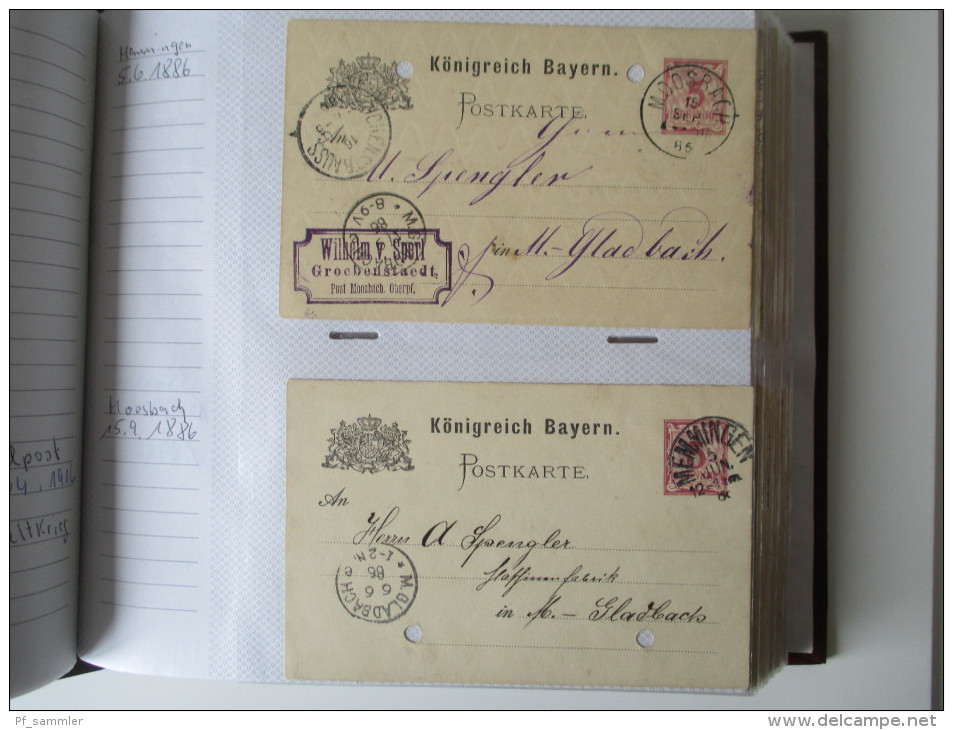 Memmingen
5.6.1886
Königreich Bayern.
POSTKARTE.
MOOSBACH
15
SEP
M. Spengler
in M.-Gladbach.
8-9V * M.G
Wilhelm v. Sperl
Groebenstaedt,
Post Moosbach, Oberpf.
Moosbach
15.9.1886
post
1916
ltkrieg
Königreich Bayern.
POSTKARTE.
MEMMINGEN
5
JUN.
12-
An
Herrn A Spengler
in M.- Gladbach
* M. GLADBACH e
6 6
86
1-2N.
Pf_sammler
www.delcampe.net